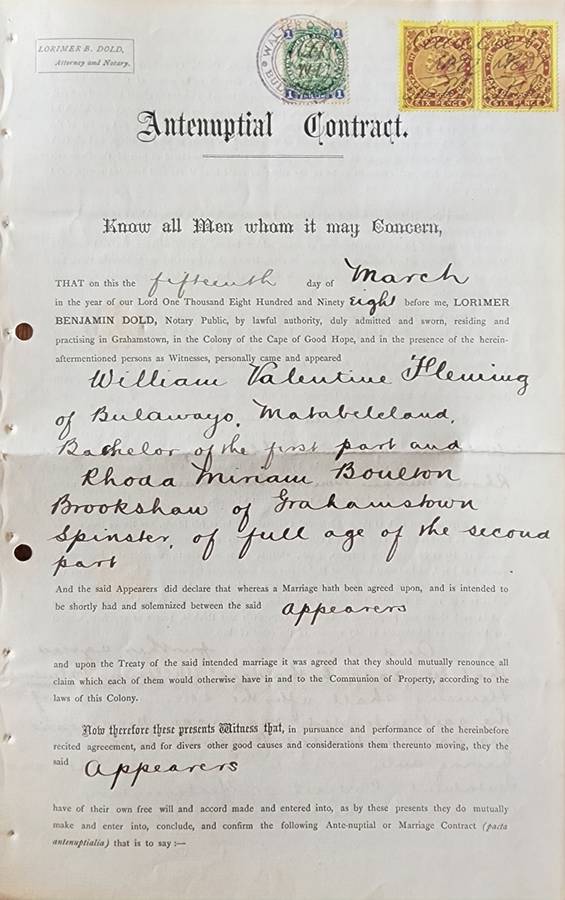 LORIMER B. DOLD,
Attorney and Notary.
WALTER
BUL
1 1
SIX PENCE SIX PENCE
Antenuptial Contract.
Know all Men whom it may Concern,
THAT on this the fifteenth day of March
in the year of our Lord One Thousand Eight Hundred and Ninety Eight before me, LORIMER
BENJAMIN DOLD, Notary Public, by lawful authority, duly admitted and sworn, residing and
practising in Grahamstown, in the Colony of the Cape of Good Hope, and in the presence of the herein-
aftermentioned persons as Witnesses, personally came and appeared
William Valentine Fleming
of Bulawayo, Matabeleland,
Bachelor of the first part and
Rhoda Miriam Boulton
Brookshaw of Grahamstown
Spinster, of full age of the second
part
And the said Appearers did declare that whereas a Marriage hath been agreed upon, and is intended to
be shortly had and solemnized between the said Appearers
and upon the Treaty of the said intended marriage it was agreed that they should mutually renounce all
claim which each of them would otherwise have in and to the Communion of Property, according to the
laws of this Colony.
Now therefore these presents Witness that, in pursuance and performance of the hereinbefore
recited agreeement, and for divers other good causes and considerations them thereunto moving, they the
said Appearers
have of their own free will and accord made and entered into, as by these presents they do mutually
make and enter into, conclude, and confirm the following Ante-nuptial or Marriage Contract (pacta
antenuptialia) that is to say :—